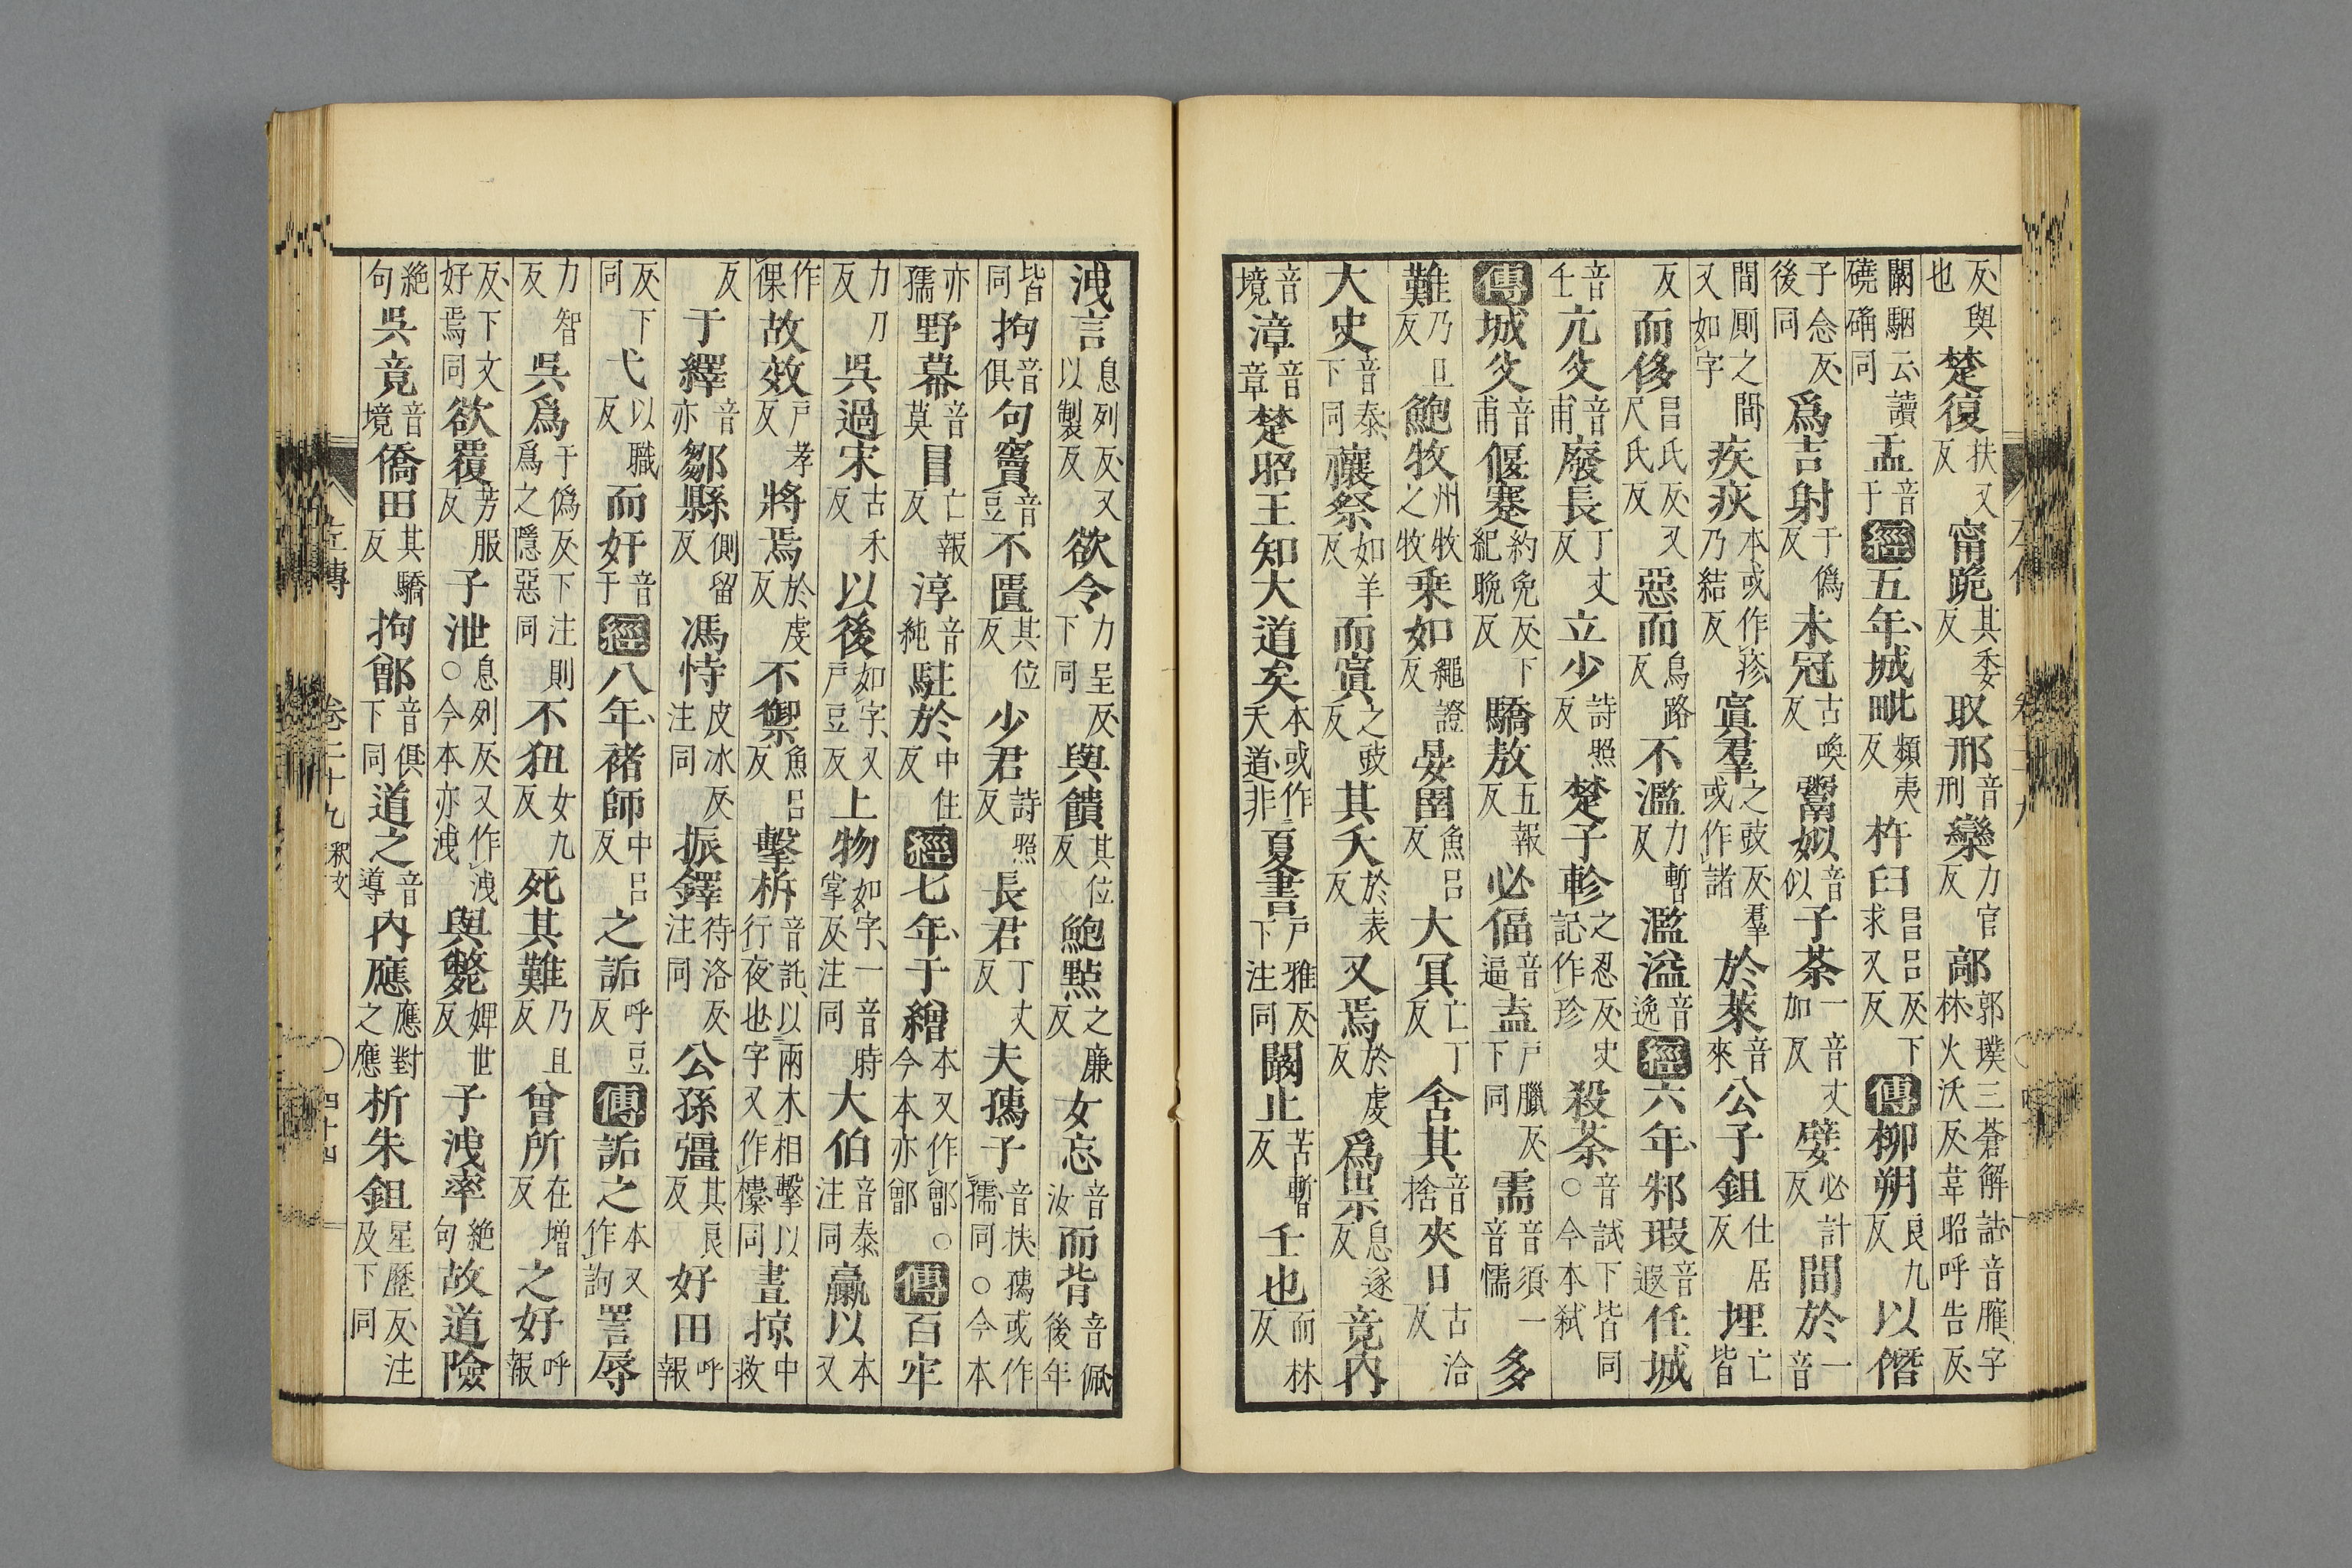 反與也楚復扶又反甯跪其委反取邢音刑欒力官反鄗郭璞三蒼解詁音臛字林火沃反韋昭呼告反
闞駰云讀磽确同盂音于經五年城毗頻夷反杵臼昌呂反下求又反傳柳朔良九反以僭
子念反後同爲吉射于僞反未冠古喚反鬻姒音似子荼一音丈加反嬖必計反間於一音
間厠之間又如字疾疢本或作疹乃結反寘羣之豉反羣或作諸於萊音來公子鉏仕居反埋亡皆
反而侈昌氏反又尺氏反惡而烏路反不濫力暫反濫溢音逸經六年邾瑕音遐任城
音壬亢父音甫廢長丁丈反立少詩照反楚子軫之忍反史記作珍殺荼音試下皆同○今本弒
傳城父音甫偃蹇約免反下紀晚反驕敖五報反必偪音逼盍戶臘反下同需音須一音懦多
難乃旦反鮑牧州牧之牧乗如繩證反晏圉魚呂反大冥亡丁反舍其音捨夾日古洽反
大史音泰下同禳祭如羊反而寘之豉反其夭於表反又焉於虔反爲祟息遂反竟内
音境漳音章楚昭王知大道矣本或作天道非夏書戶雅反下注同闞止苦暫反壬也而林反
洩言息列反又以製反欲令力呈反下同與饋其位反鮑點之廉反女忘音汝而背音佩後年
皆同拘音俱句竇音豆不匱其位反少君詩照反長君丁丈反夫孺子音扶孺或作孺同○今本
亦孺野幕音莫冒亡報反淳音純駐於中住反經七年于繒本又作鄫○今本亦鄫傳百牢
力刀反吳過宋古禾反以後如字又戶豆反上物如字一音時掌反注同大伯音泰注同羸以本又
作倮故效戶孝反將焉於虔反不禦魚呂反擊柝音託以兩木相擊以行夜也字又作㯓同晝掠中救
反于繹音亦鄒縣側留反馮恃皮冰反注同振鐸待洛反注同公孫彊其良反好田呼報
反下同弋以職反而奸音于經八年褚師中呂反之詬呼豆反傳詬之本又作訽詈辱
力智反吳爲于僞反下注爲之隱惡同則不狃女九反死其難乃旦反曾所在增反之好呼報
反下文好焉同欲覆芳服反子泄息列反又作洩○今本亦洩與斃婢世反子洩率絶句故道險
絶句吳竟音境僑田其驕反拘鄫音俱下同道之音導内應應對之應析朱鉏星歷反注及下同
左傳 卷二十九 釋文 四十四